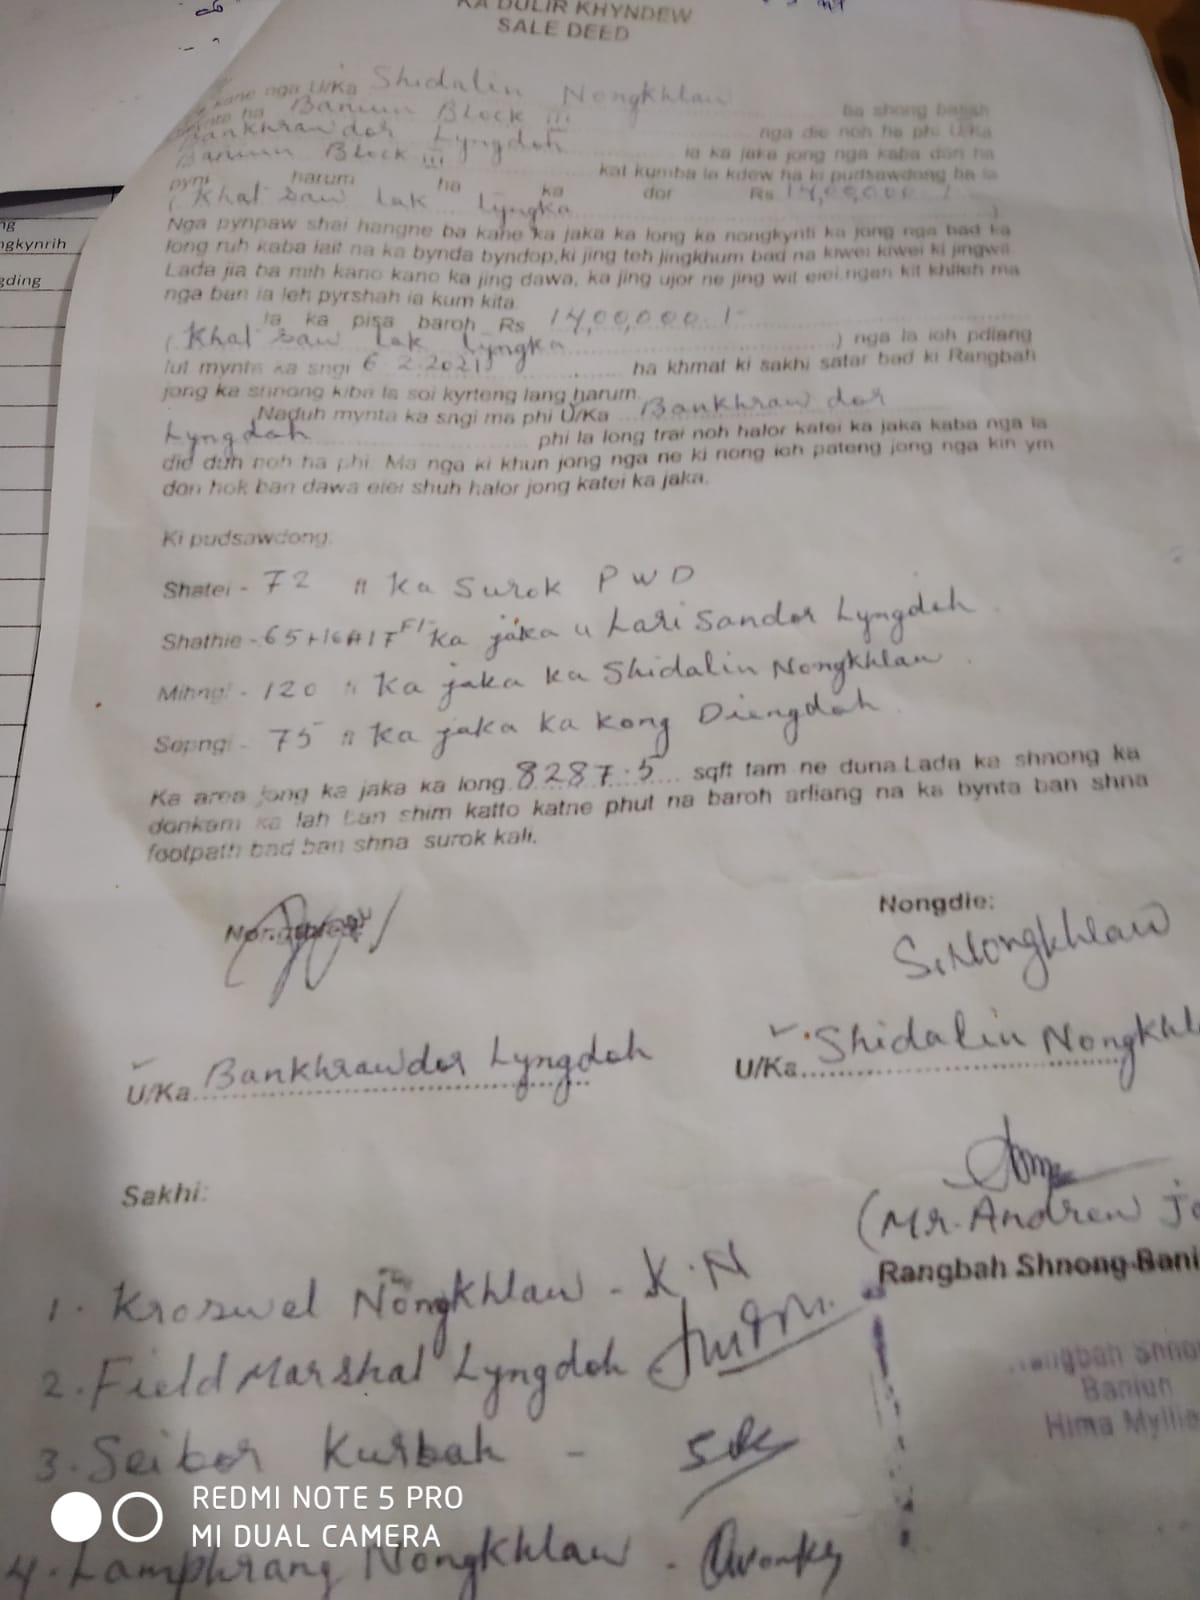 KA DULIR KHYNDEW
SALE DEED
kane nga U/Ka Shidalin Nongkhlaw ba shong basah
ha Baniun Block III nga die noh ha phi U/Ka
Bankhrawdor Lyngdoh ia ka jaka jong nga kaba don ha
Baniun Block III kat kumba la kdew ha ki pudsawdong ba la
pyni harum ha ka dor Rs 14,00,000/
(Khat saw lak lyngka)
Nga pynpaw shai hangne ba kane ka jaka ka long ka nongkynti ka jong nga bad ka
long ruh kaba lait na ka bynda byndop,ki jing teh jingkhum bad na kiwei kiwei ki jingwit.
Lada jia ba mih kano kano ka jing dawa, ka jing ujor ne jing wit eiei ngan kit khlieh ma
nga ban ia leh pyrshah ia kum kita.
Ia ka pisa baroh Rs 14,00,000.1-
(Khat saw lak lyngka) nga la ioh pdiang
lut mynta ka sngi 6.2.2021 ha khmat ki sakhi satar bad ki Rangbah
jong ka shnong kiba la soi kyrteng lang harum.
Naduh mynta ka sngi ma phi U/Ka Bankhrawdor
Lyngdoh phi la long trai noh halor katei ka jaka kaba nga la
die duh noh ha phi. Ma nga ki khun jong nga ne ki nong ioh pateng jong nga kin ym
don hok ban dawa eiei shuh halor jong katei ka jaka.
Ki pudsawdong:
Shatei - 72 ft Ka Surok PWD
Shathie - 65+16+17 Ft Ka jaka u Lari Sandor Lyngdoh
Mihngi - 120 ft Ka jaka ka Shidalin Nongkhlaw
Sepngi - 75 ft Ka jaka ka kong Diengdoh
Ka area jong ka jaka ka long 8287.5 sqft tam ne duna.Lada ka shnong ka
donkam ka lah ban shim katto katne phut na baroh arliang na ka bynta ban shna
footpath bad ban shna surok kali.
Nongdie:
S. Nongkhlaw
U/Ka Bankhrawdor Lyngdoh U/Ka Shidalin Nongkhl
Sakhi:
(Mr. Andrew
Rangbah Shnong Bani
1. Kroswel Nongkhlaw - K.N
2. Field Marshal Lyngdoh
3. Seibor Kurbah - SK
4. Lamphrang Nongkhlaw -
Rangbah Shno
Baniun
Hima Myllie
ngkynrih
gding
REDMI NOTE 5 PRO
MI DUAL CAMERA